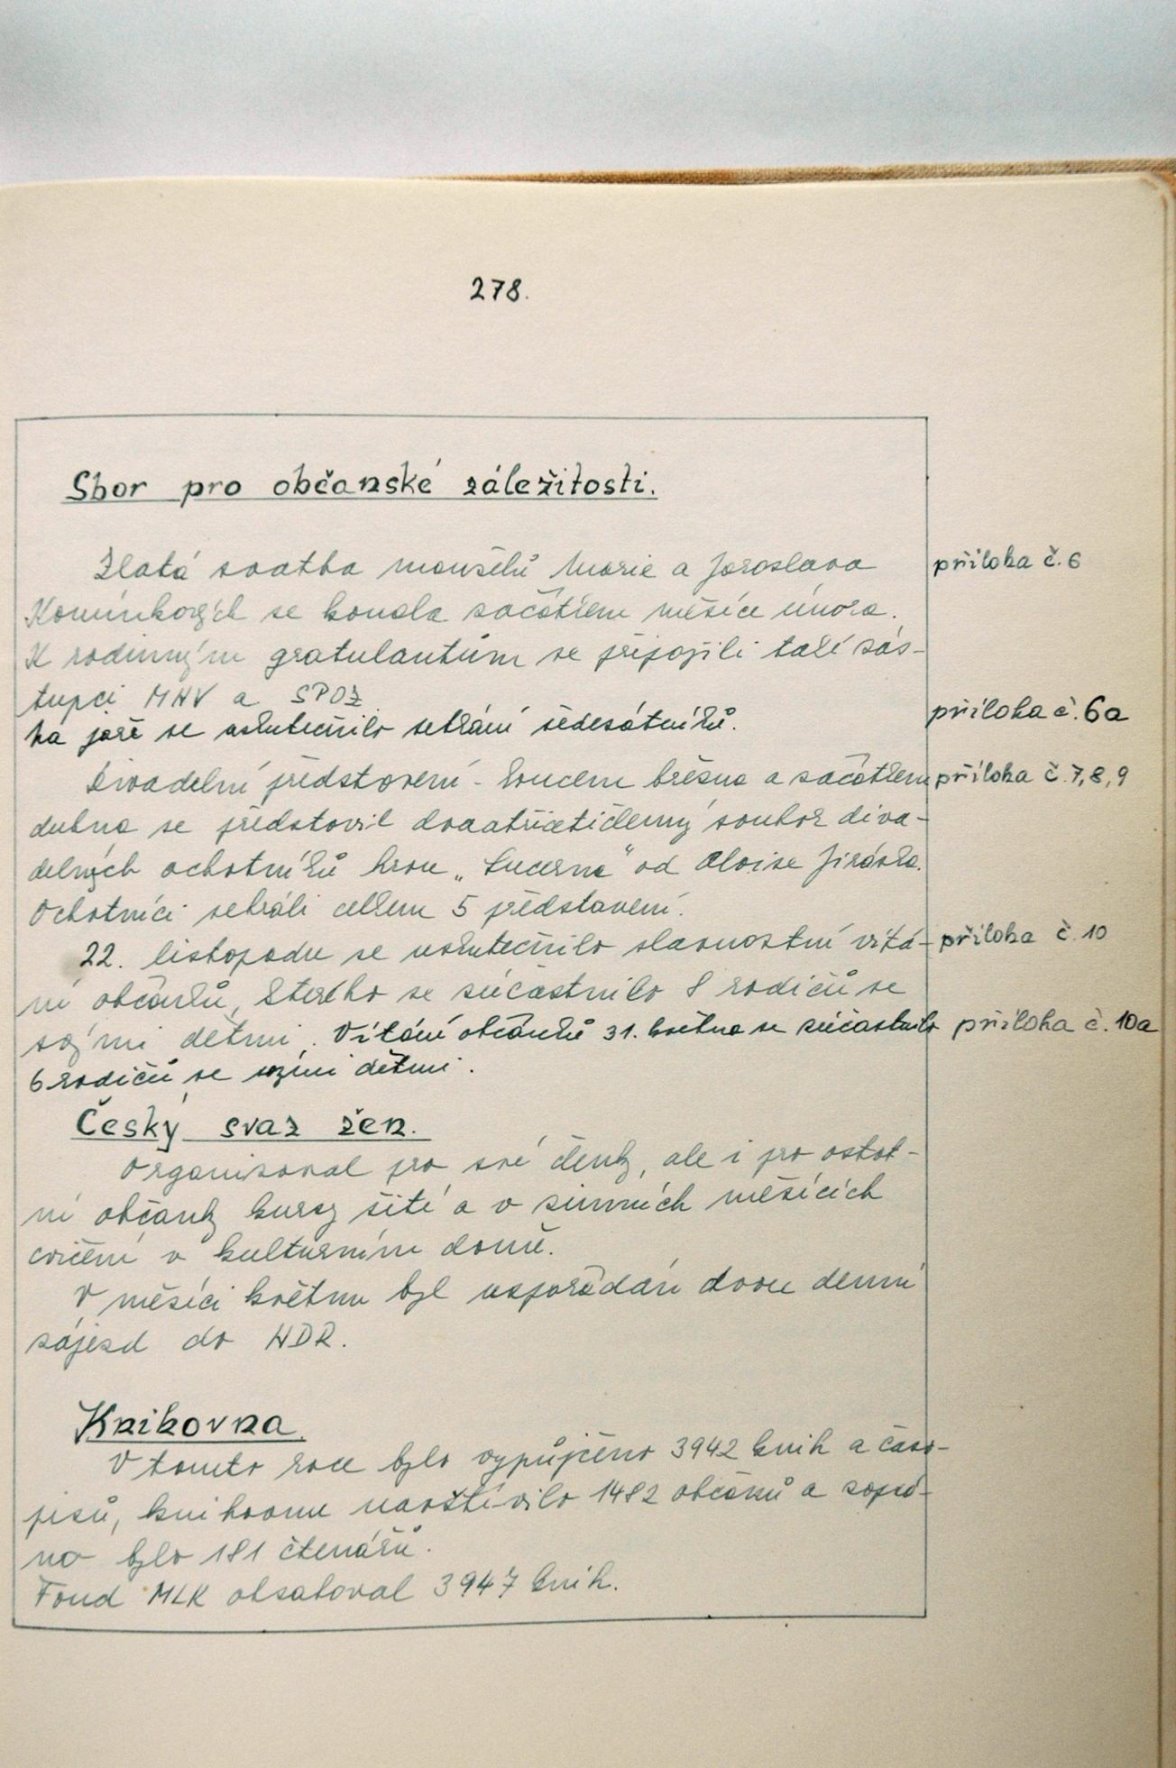 278.
Sbor pro občanské záležitosti.
Zlatá svatba manželů Marie a Jaroslava
příloha č. 6
se konala začátkem měsíce února.
K rodinným gratulantům se připojili také zás-
tupci MNV a SPOZ
Na jaře se uskutečnilo setkání šedesátníků.
příloha č. 6a
Divadelní představení - koncem března a začátkem
příloha č. 7, 8, 9
dubna se představil dvaatřicetičlenný soubor diva-
delných ochotníků hrou „Lucerna" od Aloise Jiráska.
Ochotníci sehráli celkem 5 představení.
22. listopadu se uskutečnilo slavnostní vítá-
příloha č. 10
ní občánků, kterého se zúčastnilo 8 rodičů se
svými dětmi. Vítání občánků 31. května se zúčastnilo
příloha č. 10a
6 rodičů se svými dětmi.
Český svaz žen.
Organizoval pro své členky, ale i pro ostat-
ní občanky kursy šití a v zimních měsících
cvičení v kulturním domě.
V měsíci květnu byl uspořádán dvou denní
zájezd do NDR.
Knihovna.
V tomto roce bylo vypůjčeno 3942 knih a časo-
pisů, knihovnu navštívilo 1482 občanů a zapsá-
no bylo 181 čtenářů.
Fond MLK obsahoval 3947 knih.